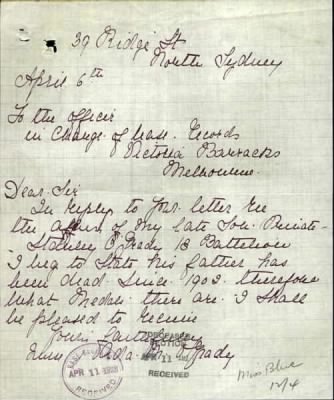 39 Ridge St
North Sydney
April 6th
To the officer
in Charge of base. Records
Victoria Barracks
Melbourne.
Dear Sir
In reply to yr. letter re
the affairs of my late Son. Private
O'Grady 13 Battalion
I beg to State his father has
been dead. Since. 1903. therefore
what medals there are. I shall
be pleased to receive
Yours faithfully
Grady
APR 11
RECEIVED
APR 11
RECEIVED
Miss Blue
12/4